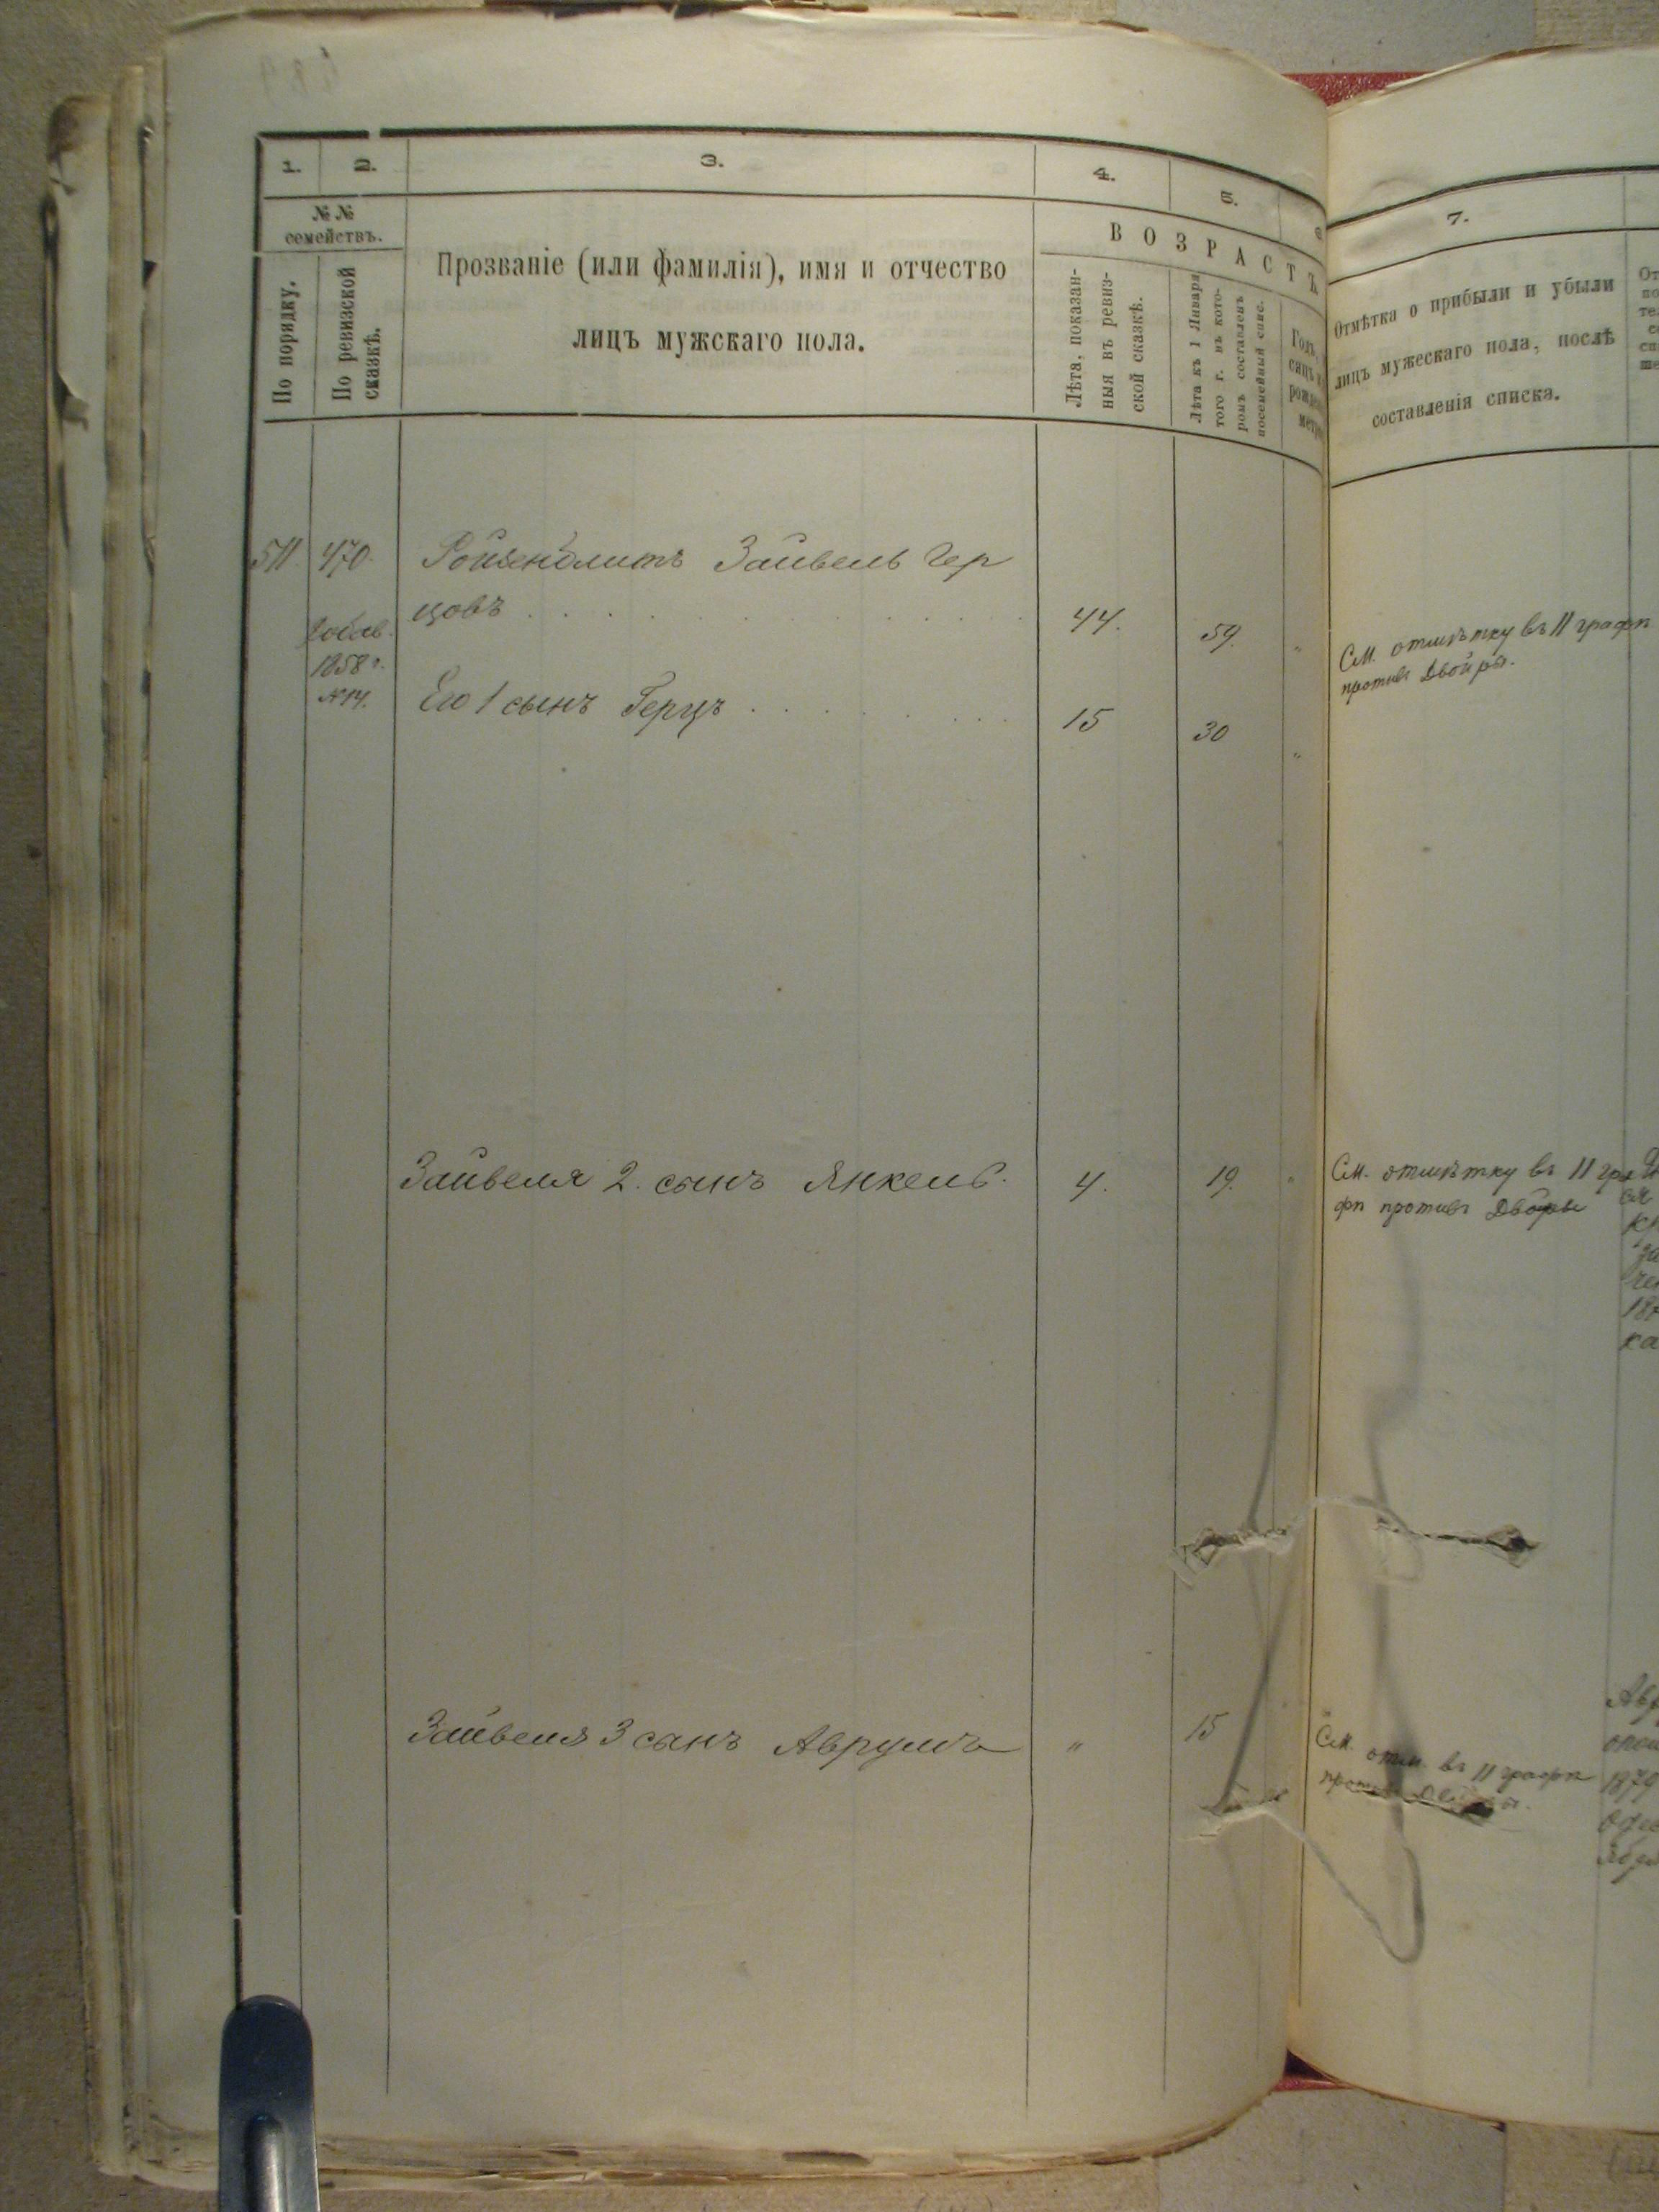 1.
2.
3.
4.
5.
7.
№ №
семействъ.
По порядку.
По ревизской
сказкѣ.
Прозваніе (или фамилія), имя и отчество
лицъ мужскаго пола.
ВОЗРАСТЪ.
Лѣта, показан-
ныя въ ревиз-
ской сказкѣ.
Лѣта къ 1 Января
того г. въ кото-
ромъ составленъ
посемейный спис.
Отмѣтка о прибыли и убыли
лицъ мужескаго пола, послѣ
составленія списка.
511 470. Зайвель Гер
цовъ 44. 59. "
1858 г.
№14.
См. отмѣтку въ 11 графѣ
противъ Двойры.
Его 1 сынъ Герцъ 15 30 "
Зайвеля 2. сынъ Янкель. 4. 19. "
См. отмѣтку въ 11 гра
фѣ противъ Двойры
Зайвеля 3 сынъ Аврумъ " 15
См. отм. въ 11 графѣ
противъ
1879